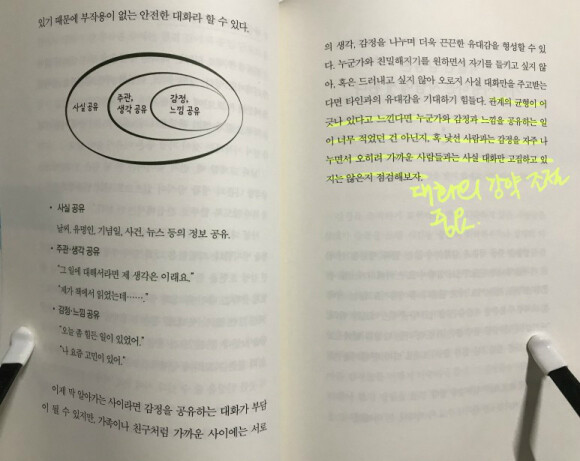 있기 때문에 부작용이 없는 안전한 대화라 할 수 있다.
사실 공유
주관,
생각 공유
감정,
느낌 공유
• 사실 공유
날씨, 유명인, 기념일, 사건, 뉴스 등의 정보 공유.
• 주관·생각 공유
"그 일에 대해서라면 제 생각은 이래요."
"제가 책에서 읽었는데……."
• 감정·느낌 공유
"오늘 좀 힘든 일이 있었어."
"나 요즘 고민이 있어."
이제 막 알아가는 사이라면 감정을 공유하는 대화가 부담
이 될 수 있지만, 가족이나 친구처럼 가까운 사이에는 서로
의 생각, 감정을 나누며 더욱 끈끈한 유대감을 형성할 수 있
다. 누군가와 친밀해지기를 원하면서 자기를 들키고 싶지 않
아, 혹은 드러내고 싶지 않아 오로지 사실 대화만을 주고받는
다면 타인과의 유대감을 기대하기 힘들다. 관계의 균형이 어
긋나 있다고 느낀다면 누군가와 감정과 느낌을 공유하는 일
이 너무 적었던 건 아닌지, 혹 낯선 사람과는 감정을 자주 나
누면서 오히려 가까운 사람들과는 사실 대화만 고집하고 있
지는 않은지 점검해보자.
대화의 강약 조절
중요.